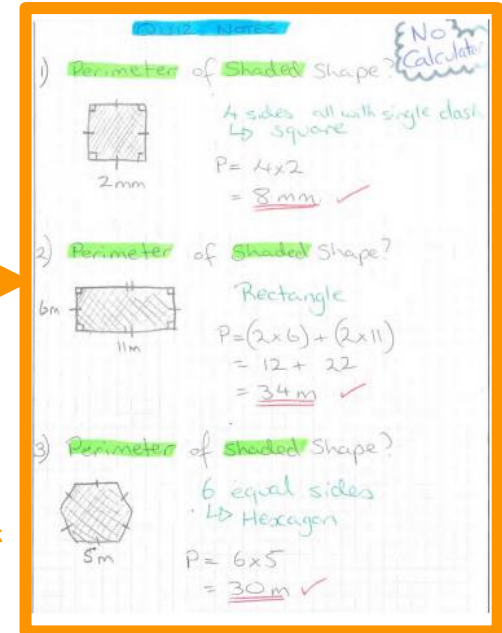 QUIZ NOTES
No Calculator
1) Perimeter of Shaded Shape?
4 sides all with single dash
↳ square
2mm
P = 4x2
= 8mm ✓
2) Perimeter of Shaded Shape?
Rectangle
6m
11m
P=(2x6) + (2x11)
= 12 + 22
= 34m ✓
3) Perimeter of Shaded Shape?
6 equal sides
↳ Hexagon
5m
P = 6x5
= 30m ✓